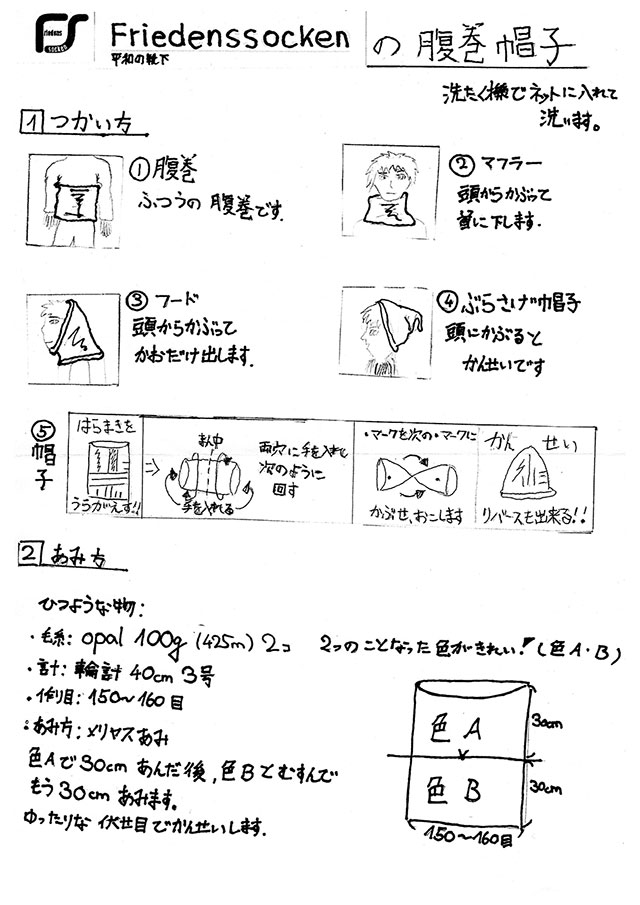 Friedens
socken
Friedenssocken の腹巻帽子
平和の靴下
洗たく機でネットに入れて
洗います。
1 つかい方
① 腹巻
ふつうの腹巻です.
② マフラー
頭からかぶって
首に下します.
③ フード
頭からかぶって
かおだけ出します.
④ ぶらさげ帽子
頭にかぶると
かんせいです
⑤ 帽子
はらまきを
うらがえす!!
真中
手を入れる
両穴に手を入れて
次のように
回す
・マークを次の・マークに
かぶせ、おこします
かんせい
リバースも出来る!!
2 あみ方
ひつような物:
・毛糸: opal 100g (425m) 2コ 2つのことなった色がきれい! (色A・B)
・計: 輪計 40cm 3号
・作り目: 150~160目
・あみ方: メリヤスあみ
色Aで30cmあんだ後, 色Bとむすんで
もう30cmあみます。
ゆったりな伏せ目でかんせいします.
色 A
30cm
色 B
30cm
150~160目